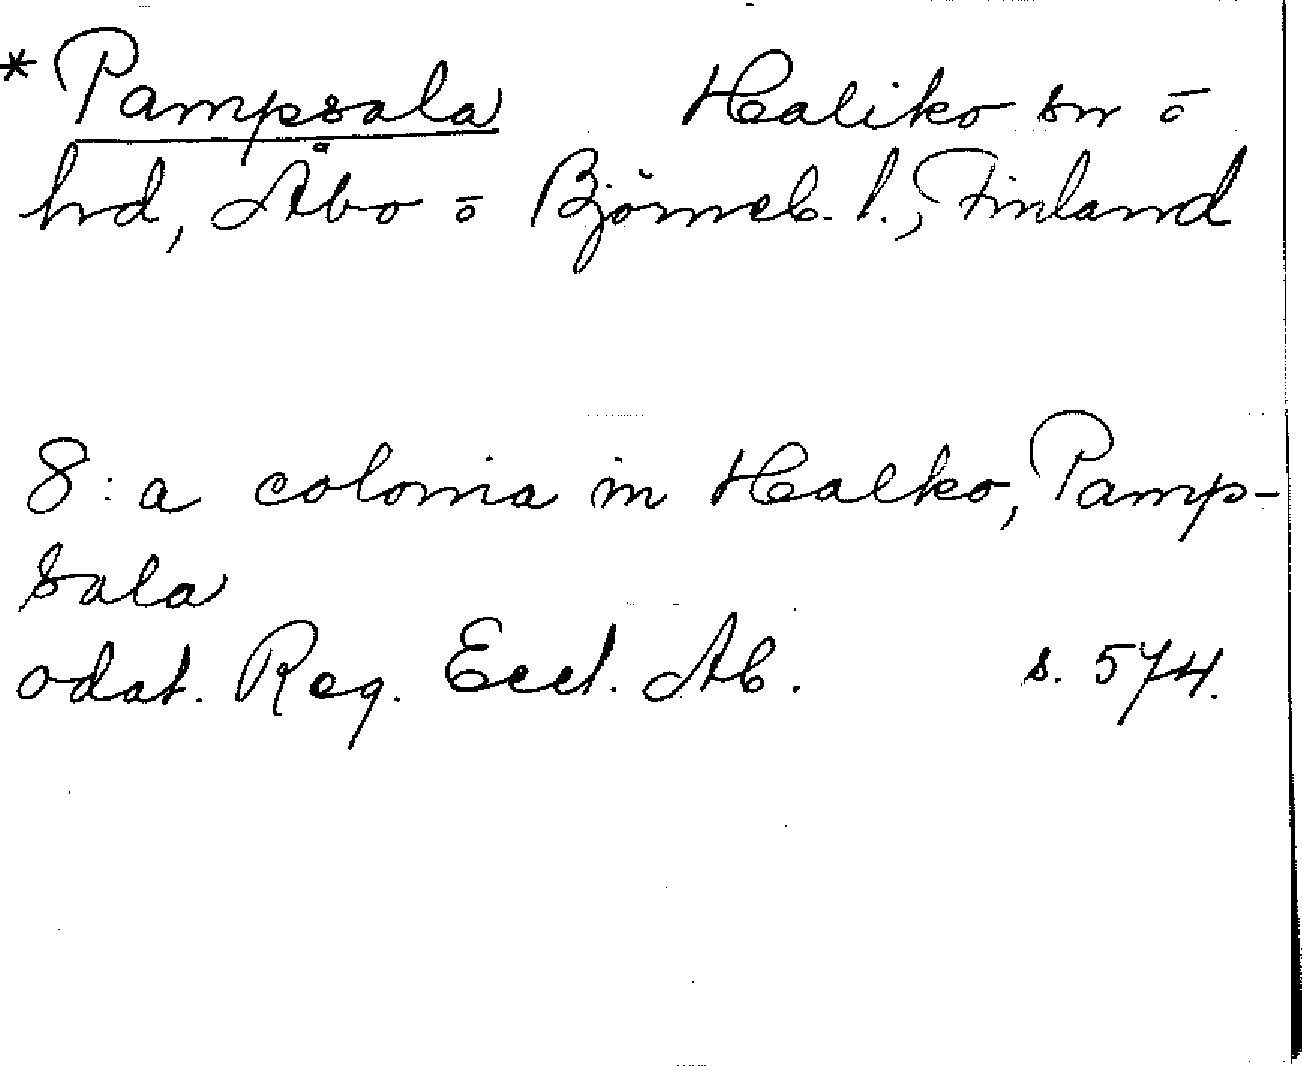 *Pampsala Haliko sn ō
hd, Åbo ō Björneb. l., Finland
8:a colonia in Halko, Pamp-
sala
odat. Reg. Eccl. Ab. s. 574.